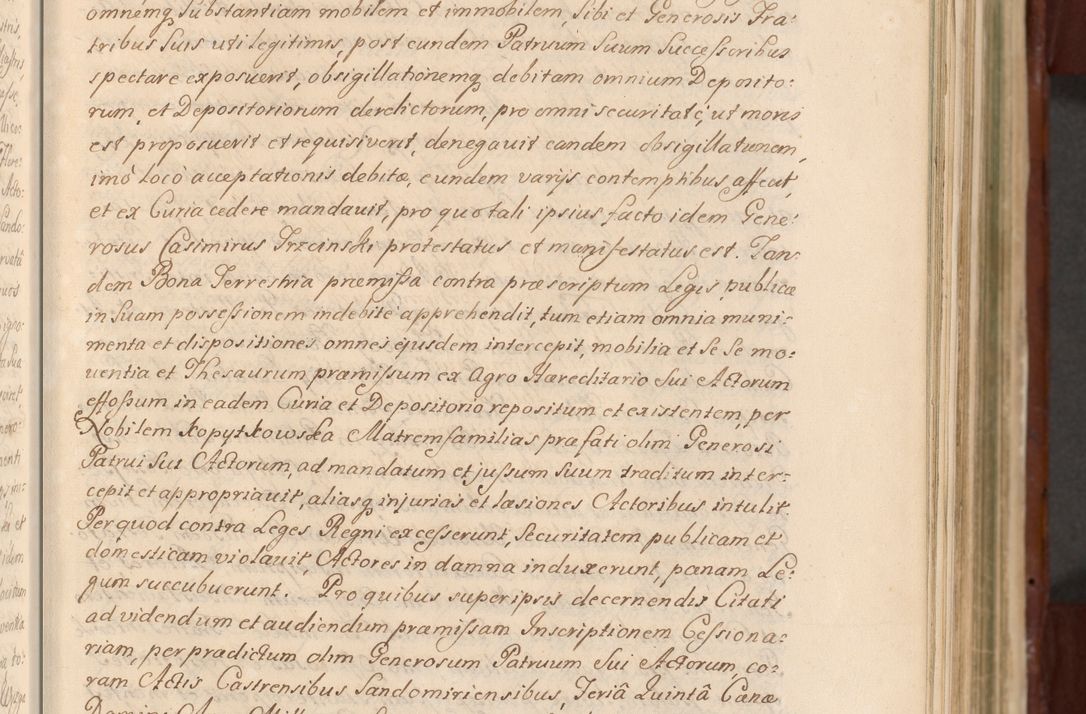 omnemq, Substantiam mobilem et immobilem, Sibi et Generosis Fra:
tribus Suis uti legitimis, post eundem Patruum Suum Successoribus
spectare exposuerit, obsigillationemq, debitam omnium Deposito:
rum, et Depositoriorum derelictorum, pro omni securitate, ut moris
est proposuerit et requisiverit, denegavit eandem obsigillationem,
imò locò acceptationis debitæ, eundem varijs contemptibus affecit,
et ex Curia cedere mandavit, pro quo tali ipsius facto idem Gene:
rosus Casimirus Trzcinski protestatus et manifestatus est. Tan:
dem Bona Terrestria præmissa contra præscriptum Legis publicæ
in Suam possessionem indebitè apprehendit, tum etiam omnia muni:
menta et dispositiones omnes ejusdem intercepit, mobilia et Se Se mo:
ventia et Thesaurum præmissum ex Agro Hæreditario Sui Actorum
effossum in eadem Curia et Depositorio repositum et existentem, per
Nobilem Kopytkowska Matremfamilias præfati olim Generosi
Patrui Sui Actorum, ad mandatum et jussum Suum traditum inter:
cepit et appropriavit, aliasq, injurias et læsiones Actoribus intulit.
Per quod contra Leges Regni excesserunt, Securitatem publicam et
domesticam violavit, Actores in damna induxerunt, pænam Le:
gum succubuerunt. Pro quibus super ipsis decernendis Citati
ad videndum et audiendum præmissam Inscriptionem Cessiona:
riam, per prædictum olim Generosum Patruum Sui Actorum, co:
ram Actis Castrensibus Sandomiriensibus, Feriâ Quintâ Cænæ